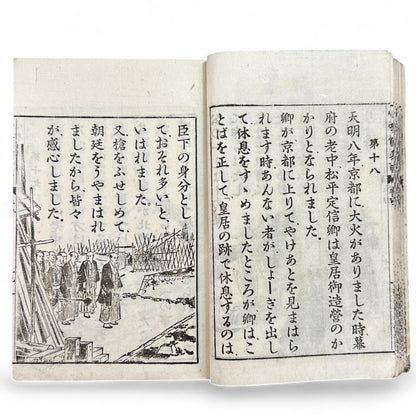 第十八
天明八年京都に大火がありました時幕
府の老中松平定信卿は皇居御造營のか
かりとなられました。
卿が京都に上りてやけあとを見まはら
れます時あんない者が、しょーぎを出し
て休息をすゝめましたところが卿はこ
とばを正して、皇居の跡で休息するのは、
臣下の身分とし
て、おそれ多い」と、
いはれました。
又槍をふせしめて、
朝廷をうやまはれ
ましたから皆々
が感心しました。